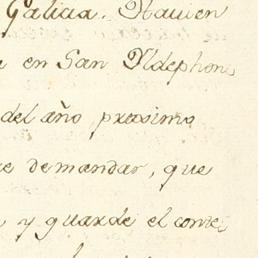 Galicia. Havien
en San Yldephon
del año proximo
demandar, que
y guarde el conte